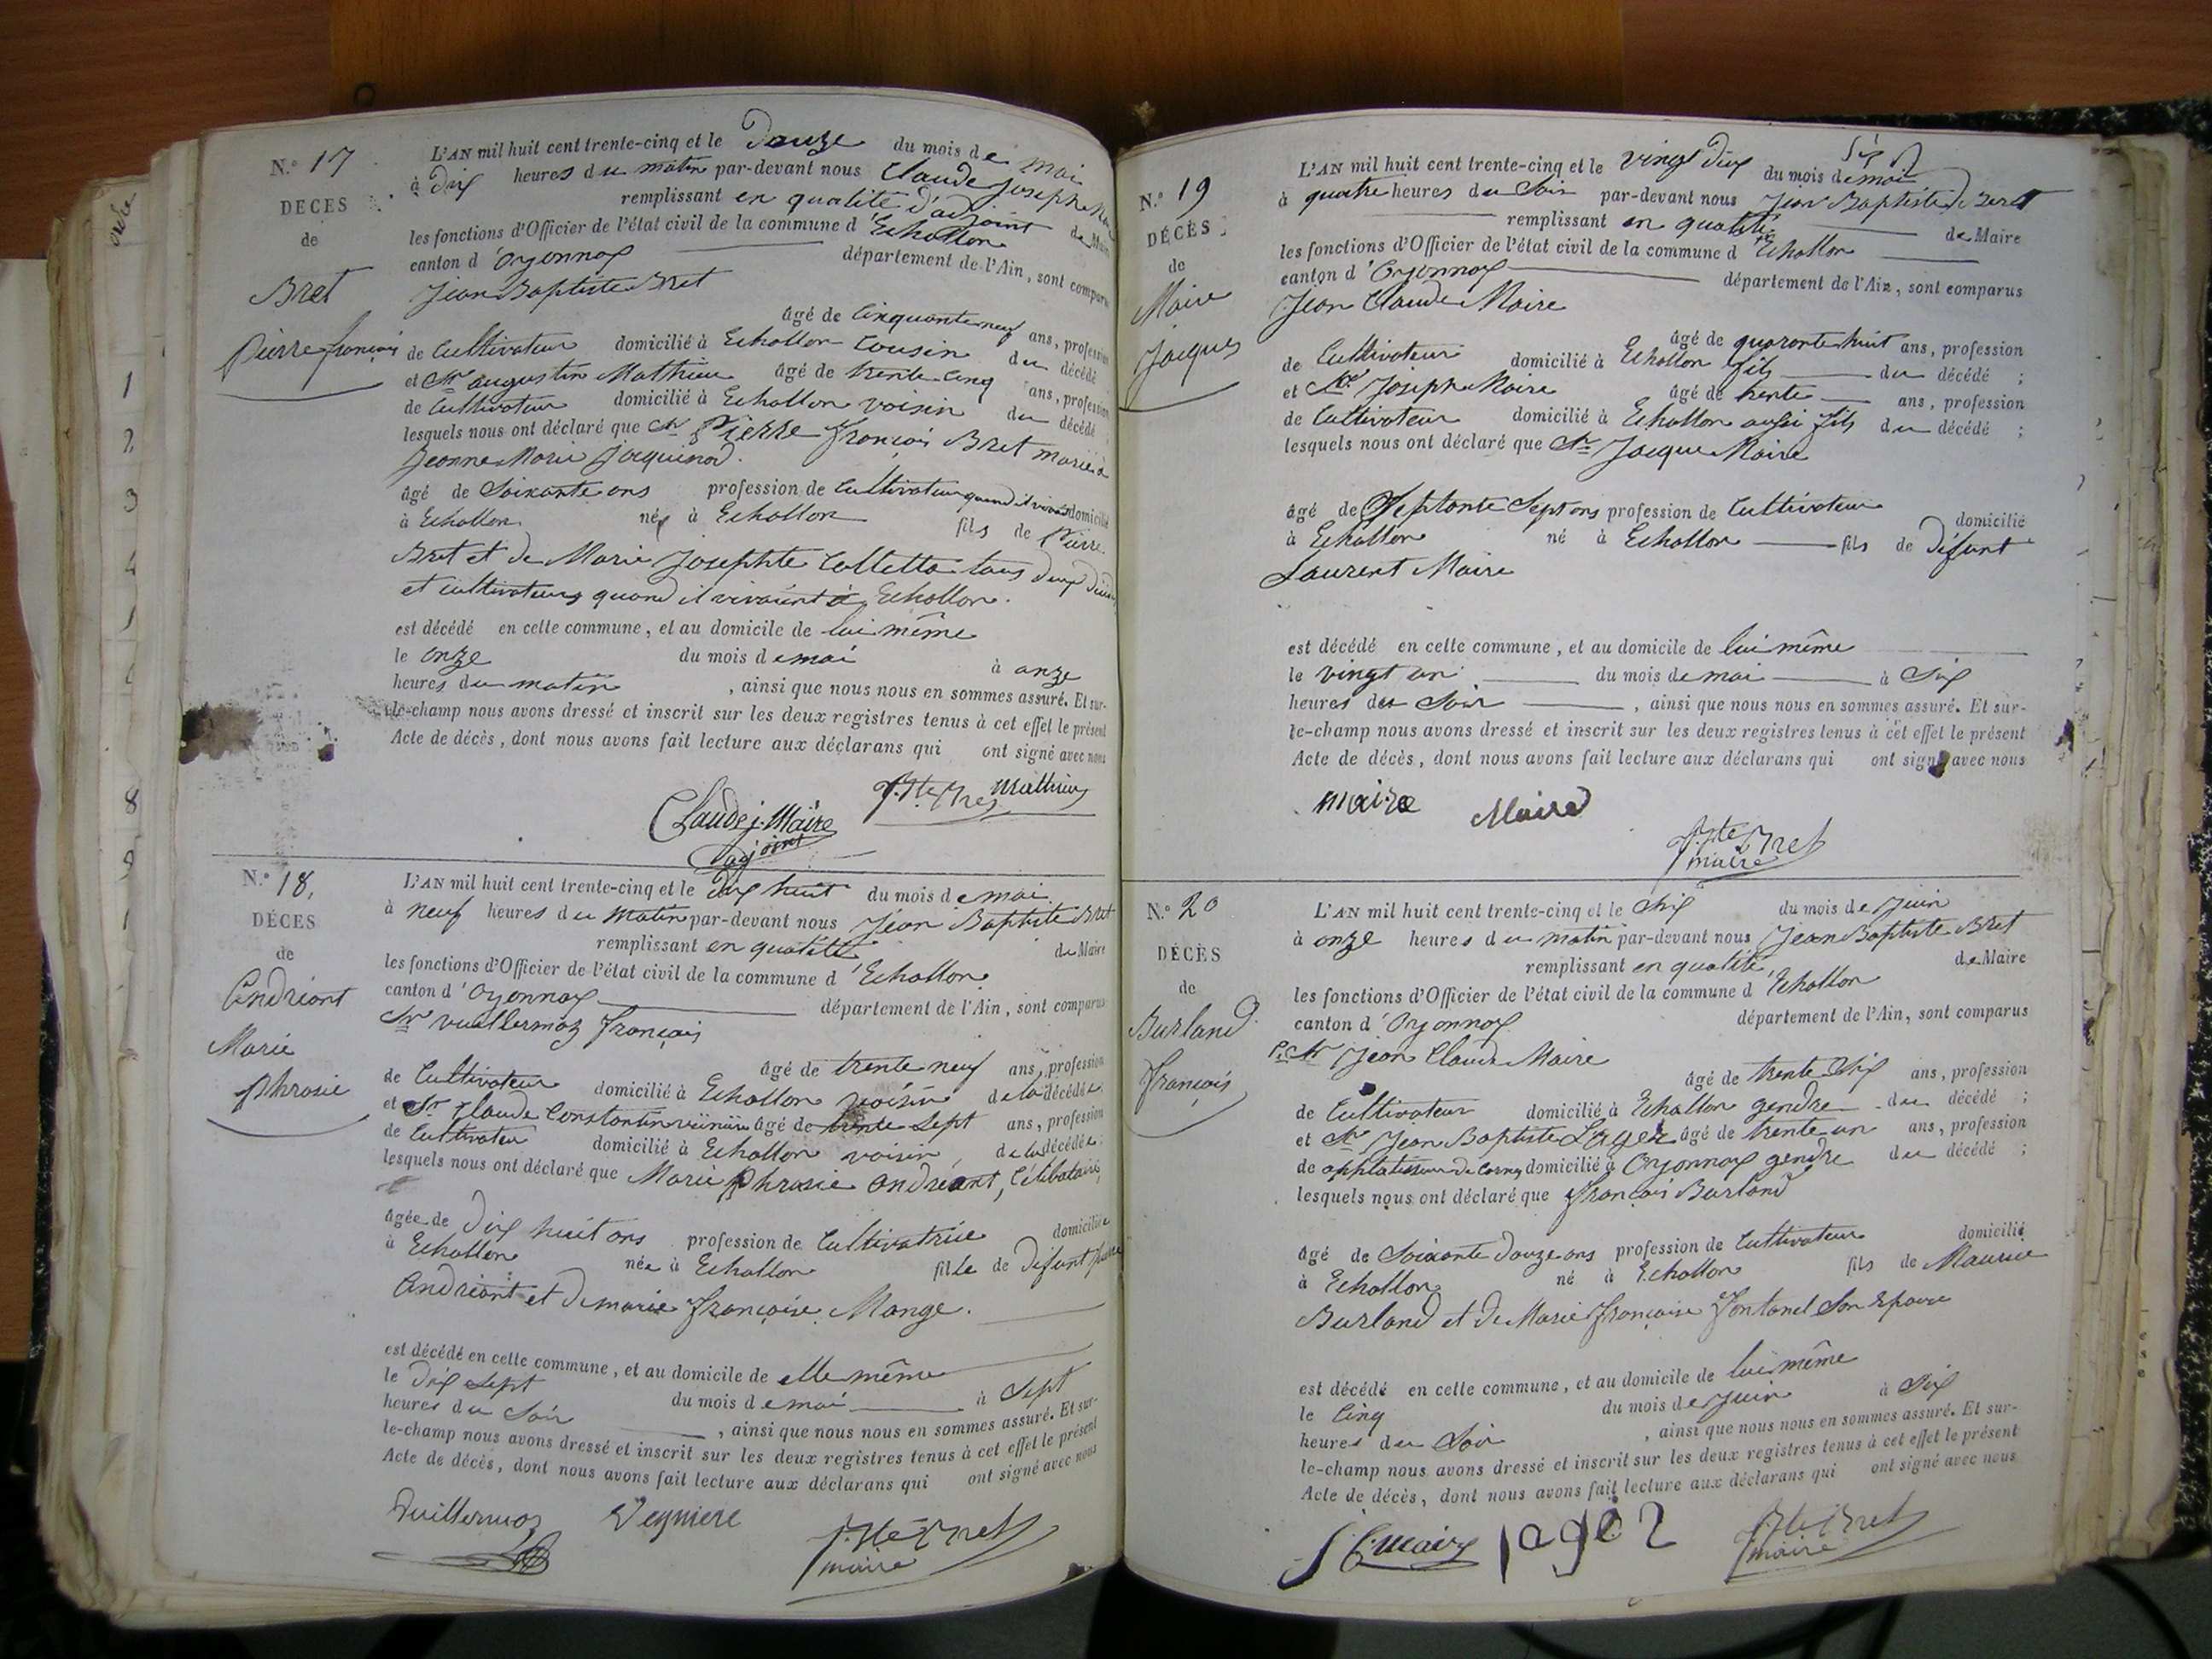 N.° 17
DECES
de
Bret
Pierre françois
L'AN mil huit cent trente-cinq et le Douze du mois de mai
à dix heures du matin par-devant nous Claude Joseph
remplissant en qualité d'adjoint de Maire
les fonctions d'Officier de l'état civil de la commune d'Echallon
canton d'Oyonnax département de l'Ain, sont comparus
Jean Baptiste Bret
âgé de Cinquante neuf ans, profession
de Cultivateur domicilié à Echallon Cousin du décédé
et Sr augustin Mathieu âgé de trente cinq ans, profession
de Cultivateur domicilié à Echallon voisin du décédé
lesquels nous ont déclaré que Sr Pierre françois Bret marié à
Jeanne Marie Jacquinod.
âgé de Soixante ans profession de Cultivateur quand il vivait domicilié
à Echallon né à Echallon fils de Pierre
Bret et de Marie Josephte Colletta tous deux
et cultivateurs quand il vivaient à Echallon.
est décédé en cette commune, et au domicile de lui même
le onze du mois de mai à onze
heures du matin, ainsi que nous nous en sommes assuré. Et sur-
le-champ nous avons dressé et inscrit sur les deux registres tenus à cet effet le présent
Acte de décès, dont nous avons fait lecture aux déclarans qui ont signé avec nous
Claude j. Maire adjoint J. Bte Bret Mathieu
N.° 18.
DÉCES
de
Andréant
Marie
Phrosie
L'AN mil huit cent trente-cinq et le Dix huit du mois de mai
à neuf heures du matin par-devant nous Jean Baptiste Bret
remplissant en qualité de Maire
les fonctions d'Officier de l'état civil de la commune d'Echallon
canton d'Oyonnax département de l'Ain, sont comparus
Sr Vuillermoz françois
âgé de trente neuf ans, profession
de Cultivateur domicilié à Echallon voisin de la décédée
et Sr Claude Constantin âgé de trente Sept ans, profession
de Cultivateur domicilié à Echallon voisin, de la décédée
lesquels nous ont déclaré que Marie Phrosie Andréant, Célibataire,
âgée de Dix huit ans profession de Cultivatrice domiciliée
à Echallon née à Echallon fille de Défunt
Andréant et de marie françoise Mange.
est décédé en cette commune, et au domicile de elle même
le Dix Sept du mois de mai à Sept
heures du Soir, ainsi que nous nous en sommes assuré. Et sur-
le-champ nous avons dressé et inscrit sur les deux registres tenus à cet effet le présent
Acte de décès, dont nous avons fait lecture aux déclarans qui ont signé avec nous
Vuillermoz J. Bte Bret maire
N.° 19
DÉCÈS
de
Maire
Jacques
L'AN mil huit cent trente-cinq et le vingt deux du mois de mai
à quatre heures du Soir par-devant nous Jean Baptiste Bret
remplissant en qualité de Maire
les fonctions d'Officier de l'état civil de la commune d'Echallon
canton d'Oyonnax département de l'Ain, sont comparus
Jean Claude Maire
âgé de quarante huit ans, profession
de Cultivateur domicilié à Echallon fils du décédé ;
et Joseph Maire âgé de trente ans, profession
de Cultivateur domicilié à Echallon aussi fils du décédé ;
lesquels nous ont déclaré que Sr Jacque Maire
âgé de Septante Sept ans profession de Cultivateur domicilié
à Echallon né à Echallon fils de Défunt
Laurent Maire
est décédé en cette commune, et au domicile de lui même
le vingt un du mois de mai à Six
heures du Soir, ainsi que nous nous en sommes assuré. Et sur-
le-champ nous avons dressé et inscrit sur les deux registres tenus à cet effet le présent
Acte de décès, dont nous avons fait lecture aux déclarans qui ont signé avec nous
maire Maire J. Bte Bret maire
N.° 20
DÉCÈS
de
Burland
françois
L'AN mil huit cent trente-cinq et le Six du mois de Juin
à onze heures du matin par-devant nous Jean Baptiste Bret
remplissant en qualité de Maire
les fonctions d'Officier de l'état civil de la commune d'Echallon
canton d'Oyonnax département de l'Ain, sont comparus
Sr Jean Claude Maire
âgé de trente Six ans, profession
de Cultivateur domicilié à Echallon gendre du décédé ;
et Sr Jean Baptiste Lager âgé de trente un ans, profession
de applatisseur de Cornes domicilié à Oyonnax gendre du décédé ;
lesquels nous ont déclaré que françois Burland
âgé de Soixante Douze ans profession de Cultivateur domicilié
à Echallon né à Echallon fils de Maurice
Burland et de Marie françoise Fontanel Son Epouse
est décédé en cette commune, et au domicile de lui même
le Cinq du mois de Juin à Six
heures du Soir, ainsi que nous nous en sommes assuré. Et sur-
le-champ nous avons dressé et inscrit sur les deux registres tenus à cet effet le présent
Acte de décès, dont nous avons fait lecture aux déclarans qui ont signé avec nous
J. Bte Bret maire